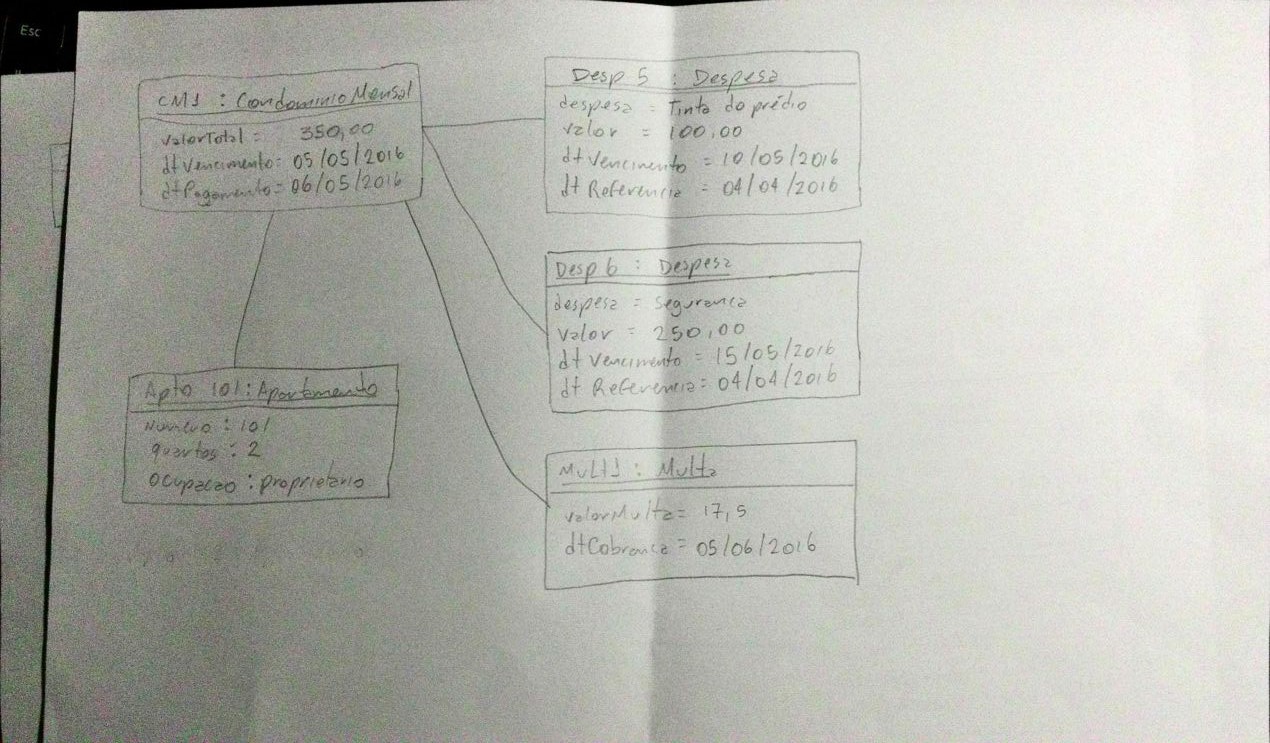 Esc
CM1 : CondominioMensal
valorTotal = 350,00
dtVencimento = 05/05/2016
dtPagamento = 06/05/2016
Desp 5 : Despesa
despesa = Tinta do prédio
valor = 100,00
dtVencimento = 10/05/2016
dt Referencia = 04/04/2016
Desp 6 : Despesa
despesa = Seguranca
valor = 250,00
dt Vencimento = 15/05/2016
dt Referencia = 04/04/2016
Apto 101 : Apartamento
Numero : 101
quartos : 2
Ocupacao : proprietario
Mult1 : Multa
valorMulta = 17,5
dtCobranca = 05/06/2016